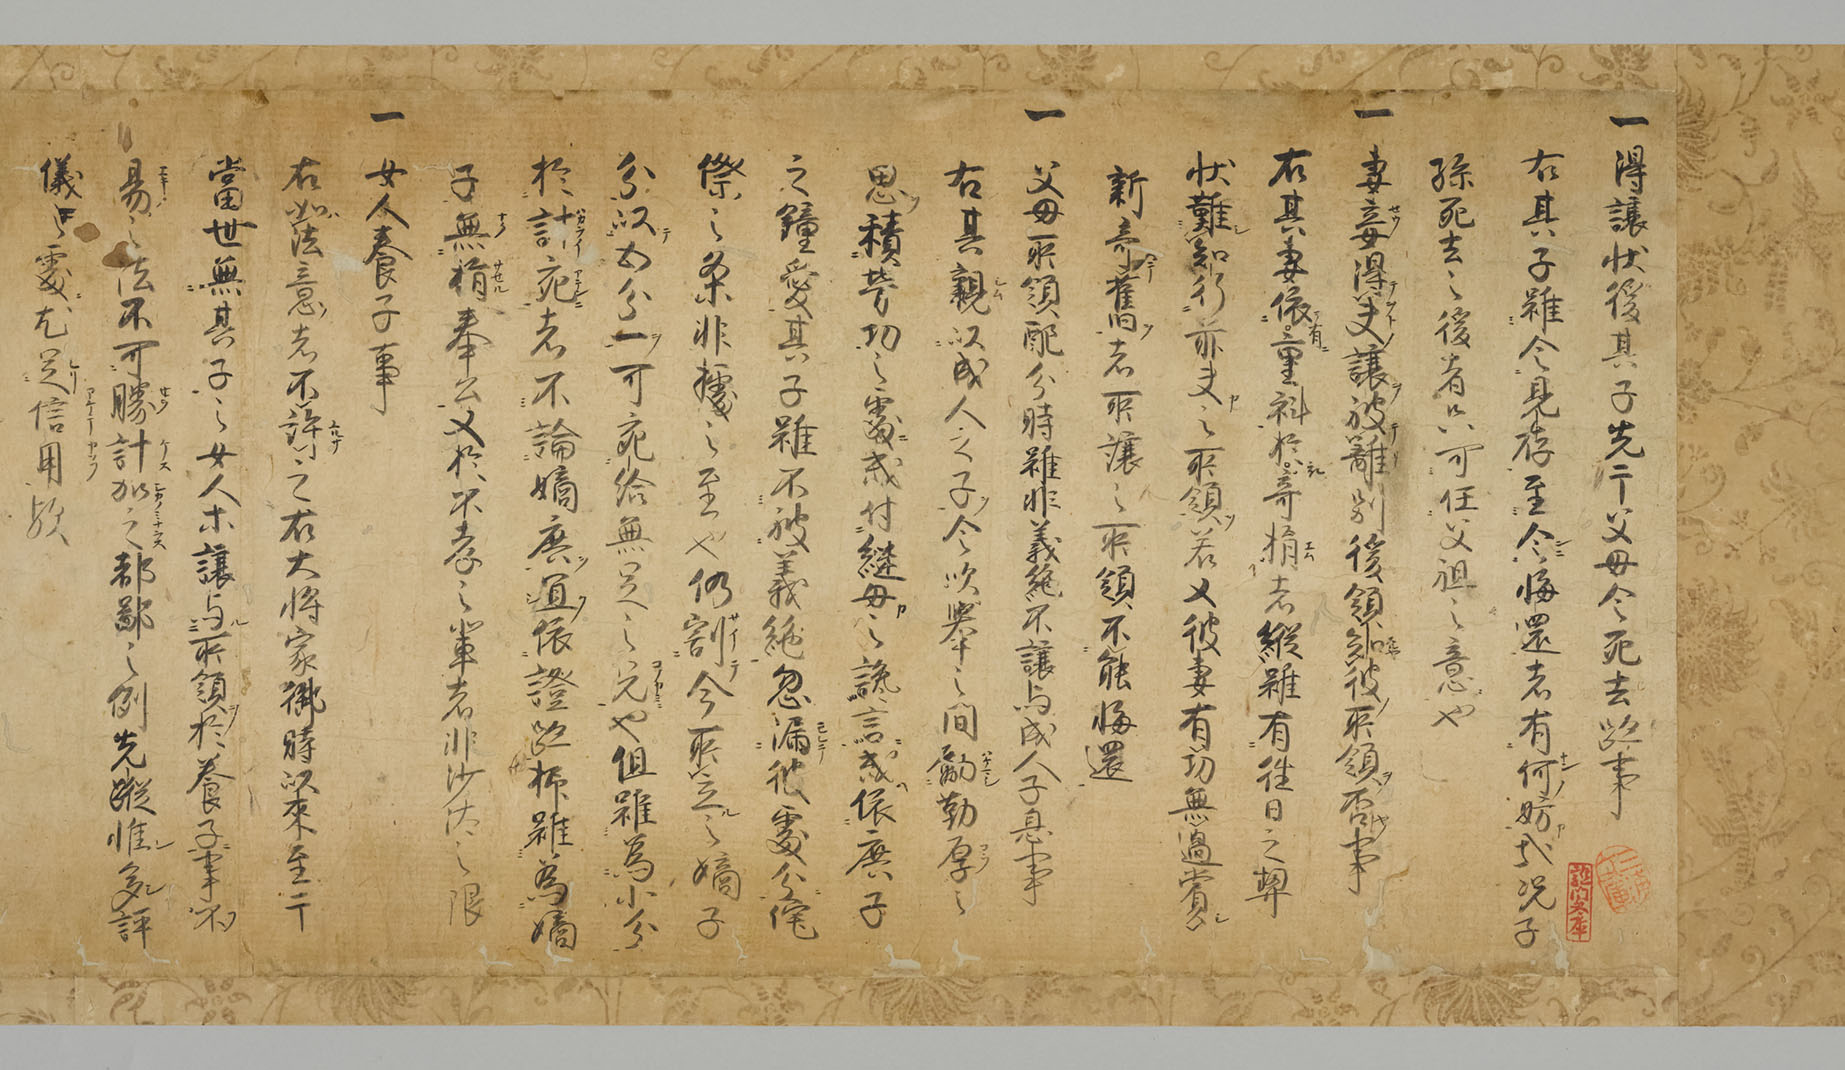 一 得讓状後其子先于父母令死去跡事
右其子雖令見存至令悔還者有何妨哉况子
孫死去之後者只可任父祖之意也
一 妻妾得夫讓被離別後領知彼所領否事
右其妻依有重科於被弃捐者縱雖有往日之契
状難知行前夫之所領若又彼妻有功無過賞
新弃舊者所讓之所領不能悔還
一 父母所領配分時雖非義絶不讓与成人子息事
右其親以成人之子令吹擧之間勵勤厚之
思積勞功之處或付継母之讒言或依庶子
之鐘愛其子雖不被義絶忽漏彼處分侘
傺之条非據之至也仍割今所立之嫡子
分以五分一可宛給無足之兄也但雖為小分
於計宛者不論嫡庶宜依證跡抑雖為嫡
子無指奉公又於不孝之輩者非沙汰之限
一 女人養子事
右如法意者不許之右大将家御時以來至于
當世無其子之女人等讓与所領於養子事不
易之法不可勝計加之都鄙之例先蹤惟多評
儀之處尤足信用歟